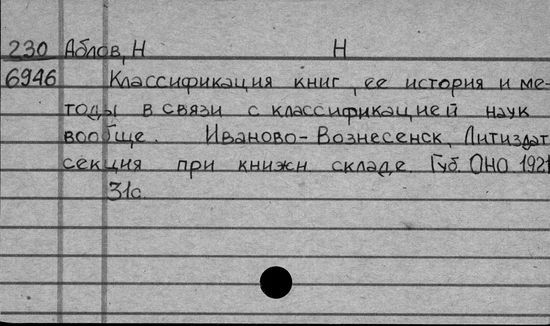 230 Аблов, Н Н
6946 Классификация книг, ее история и ме-
тоды в связи с классификацией наук
вообще. Иваново-Вознесенск, Литиздат
секция при книжн складе. Губ. ОНО. 1921
31с.